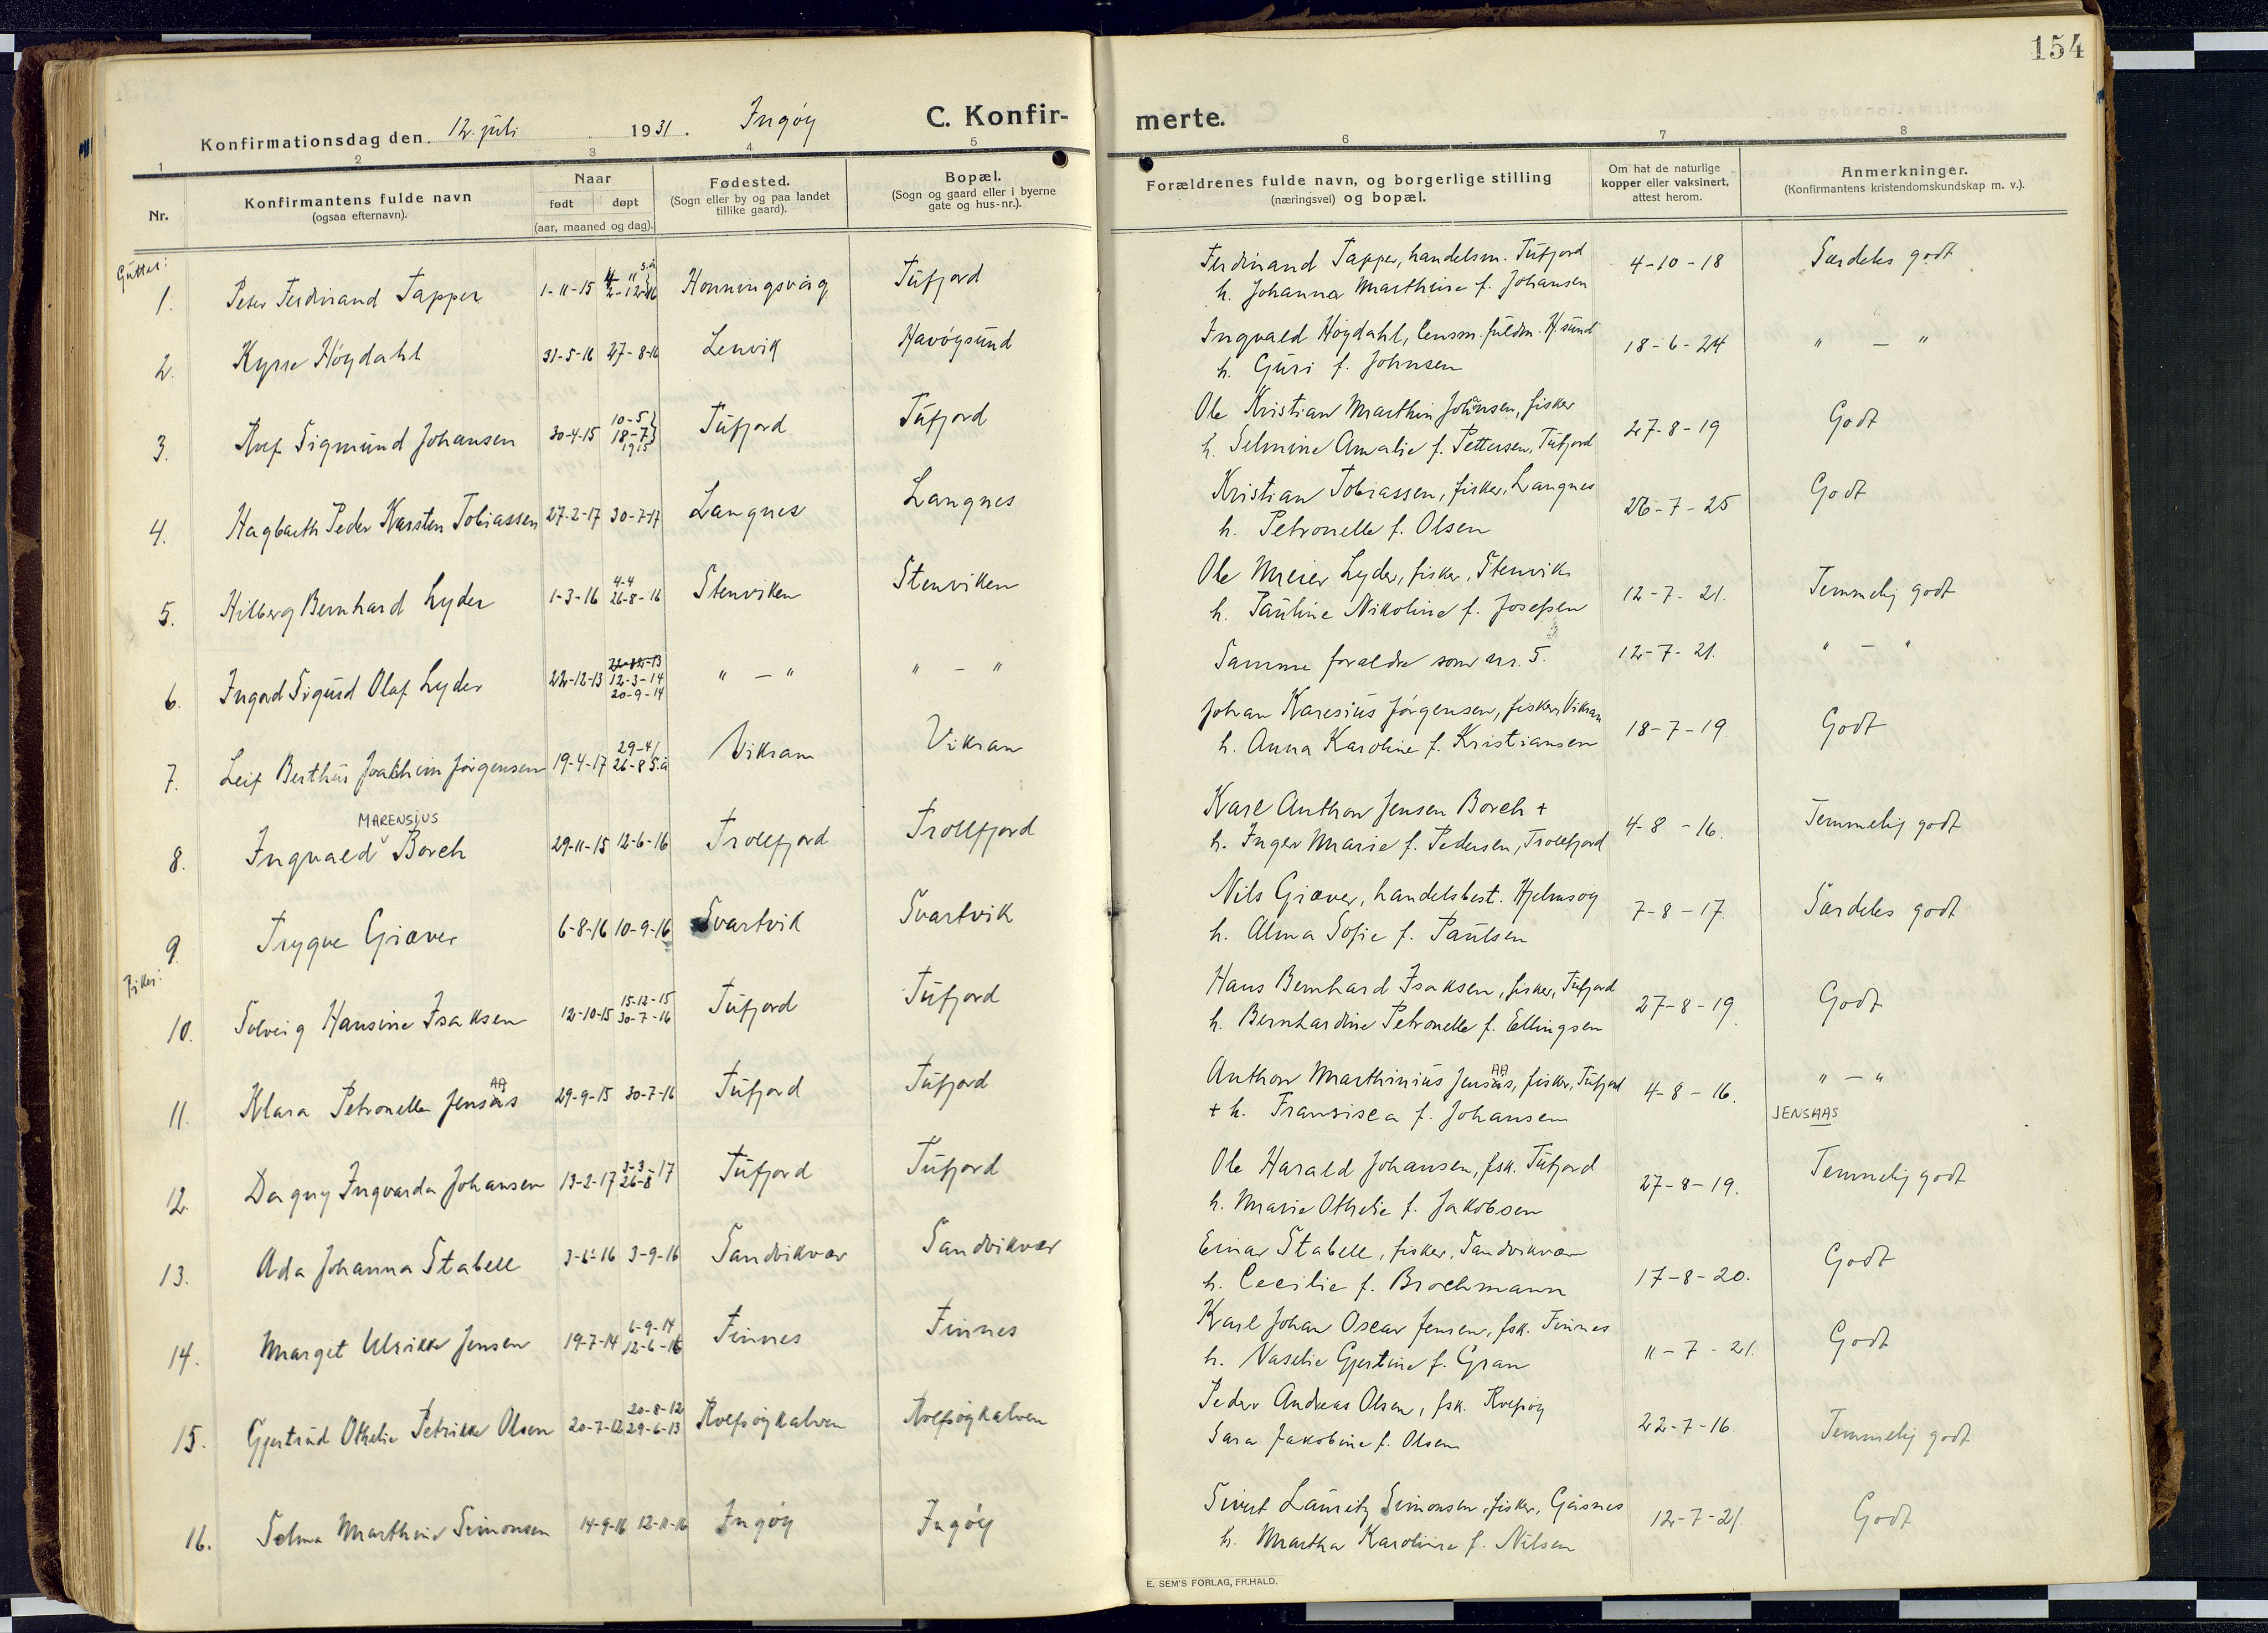 154
Konfirmationsdag den 12. juli 1931. Ingøy
C. Konfirmerte.
1 2 3 4 5 6 7 8
Nr.
Konfirmantens fulde navn
(ogsaa efternavn).
Naar
født døpt
(aar, maaned og dag).
Fødested.
(Sogn eller by og paa landet
tillike gaard).
Bopæl.
(Sogn og gaard eller i byerne
gate og hus-nr.).
Forældrenes fulde navn, og borgerlige stilling
(næringsvei) og bopæl.
Om hat de naturlige
kopper eller vaksinert,
attest herom.
Anmerkninger.
(Konfirmantens kristendomskundskap m. v.).
Gutter:
1. Peter Ferdinand Tapper 1-11-15 2-12-16 Honningsvåg Tufjord
Ferdinand Tapper, handelsm. Tufjord 4-10-18 Særdeles godt
h. Johanna Marthine f. Johansen
2. Kyrre Høgdahl 31-5-16 27-8-16 Lenvik Havøysund
Ingvald Høgdahl, lensm. fuldm. H.sund 18-6-24 " — "
h. Guri f. Johnsen
3. Alf Sigmund Johansen 30-4-15 10-5 18-7 1915 Tufjord Tufjord
Ole Kristian Marthin Johansen, fisker 27-8-19 Godt
h. Selmine Amalie f. Pettersen, Tufjord
4. Hagbarth Peder Karsten Tobiassen 27-2-17 30-7-17 Langnes Langnes
Kristian Tobiassen, fisker, Langnes 26-7-25 Godt
h. Petronelle f. Olsen
5. Hilberg Bernhard Lyder 1-3-16 4-4 26-8-16 Stenviken Stenviken
Ole Meier Lyder, fisker, Stenvik 12-7-21. Temmelig godt
h. Pauline Nikoline f. Josefsen
6. Ingvard Sigurd Olaf Lyder 22-12-13 22-12-13 12-3-14 20-9-14 " — " " — "
Samme foreldre som nr. 5. 12-7-21. " — "
7. Leif Berthus Joakheim Jørgensen 19-4-17 29-4 26-8 s.å Vikran Vikran
Johan Karesius Jørgensen, fisker, Vikran 18-7-19. Godt
h. Anna Karoline f. Kristiansen
MARENSIUS
8. Ingvald Borch 29-11-15 12-6-16 Trollfjord Trollfjord
Karl Anthon Jensen Borch + 4-8-16. Temmelig godt
h. Inger Marie f. Pedersen, Trollfjord
9. Trygve Giæver 6-8-16 10-9-16 Svartvik Svartvik
Nils Giæver, handelsbest. Hjelmsøy 7-8-17. Særdeles godt
h. Alma Sofie f. Paulsen
Piker:
10. Solveig Hansine Isaksen 12-10-15 15-12-15 30-7-16 Tufjord Tufjord
Hans Bernhard Isaksen, fisker, Tufjord 27-8-19. Godt
h. Bernhardine Petronelle f. Ellingsen
AA
11. Klara Petronella Jensås 29-9-15 30-7-16 Tufjord Tufjord
AA
Anthon Marthinius Jensås, fisker, Tufjord 4-8-16. " — "
+ h. Fransisca f. Johansen
JENSAAS
12. Dagny Ingvarda Johansen 13-2-17 3-3 26-8 -17 Tufjord Tufjord
Ole Harald Johansen, fsk. Tufjord 27-8-19. Temmelig godt
h. Marie Othelie f. Jakobsen
13. Ada Johanna Stabell 3-6-16 3-9-16 Sandvikvær Sandvikvær
Einar Stabell, fisker, Sandvikvær 17-8-20. Godt
h. Cecilie f. Brochmann
14. Marget Ulrikke Jensen 19-7-14 6-9-14 12-6-16 Finnes Finnes
Karl Johan Oscar Jensen, fsk. Finnes 11-7-21. Godt
h. Vaselie Gjertine f. Gran
15. Gjertrud Othelie Petrikke Olsen 20-7-12 20-8-12 29-6-13 Rolfsøykalven Rolfsøykalven
Peder Andreas Olsen, fsk. Rolfsøy 22-7-16. Temmelig godt
Sara Jakobine f. Olsen
16. Selma Marthine Simonsen 14-9-16 12-11-16 Ingøy Ingøy
Sivert Lauritz Simonsen, fisker, Gåsnes 12-7-21. Godt
h. Martha Karoline f. Nilsen
E. SEM'S FORLAG, FR.HALD.